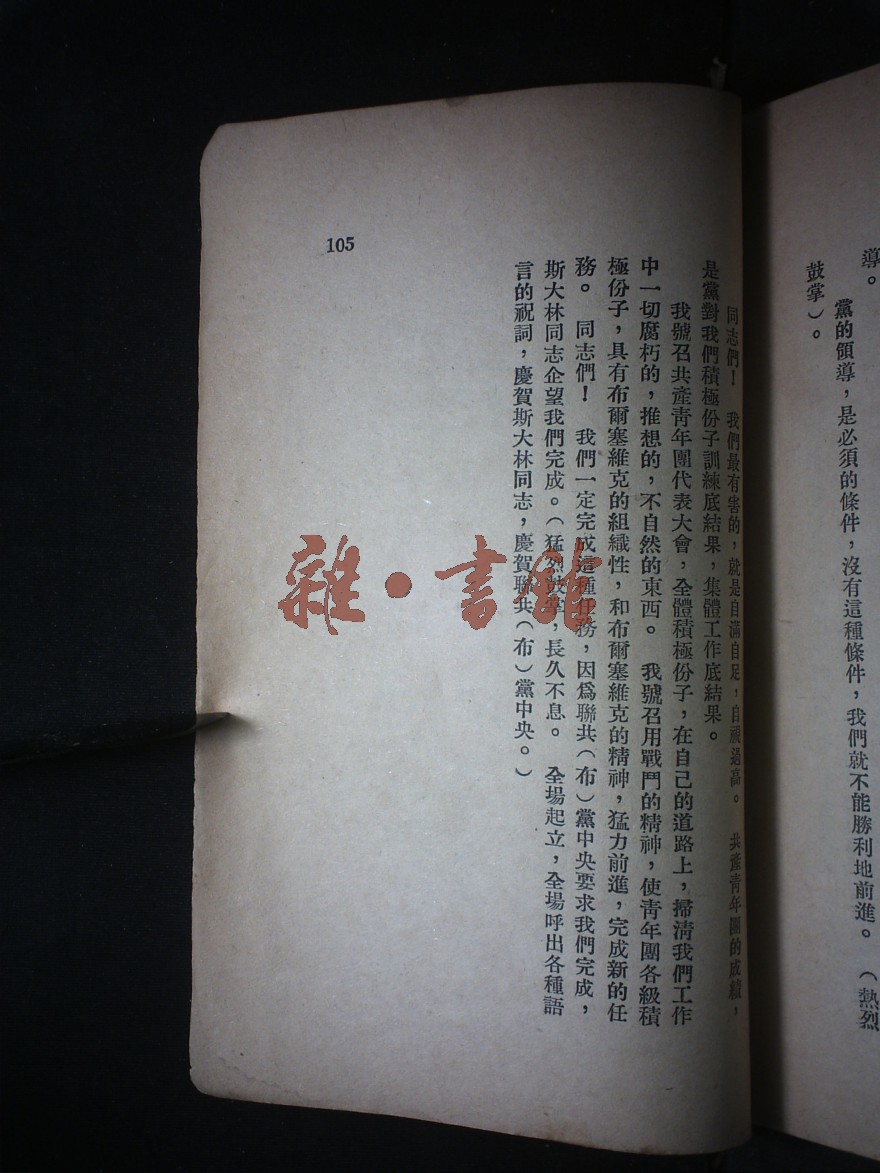 導。　黨的領導，是必須的條件，沒有這種條件，我們就不能勝利地前進。　（熱烈
鼓掌）。
同志們！　我們最有害的，就是自滿自足，自視過高。　共產青年團的成績，
是黨對我們積極份子訓練底結果，集體工作底結果。
我號召共產青年團代表大會，全體積極份子，在自己的道路上，掃清我們工作
中一切腐朽的，推想的，不自然的東西。　我號召用戰鬥的精神，使青年團各級積
極份子，具有布爾塞維克的組織性，和布爾塞維克的精神，猛力前進，完成新的任
務。　同志們！　我們一定完成這種任務，因爲聯共（布）黨中央要求我們完成，
斯大林同志企望我們完成。（猛烈鼓掌，長久不息。　全場起立，全場呼出各種語
言的祝詞，慶賀斯大林同志，慶賀聯共（布）黨中央。）
105
雜·書館